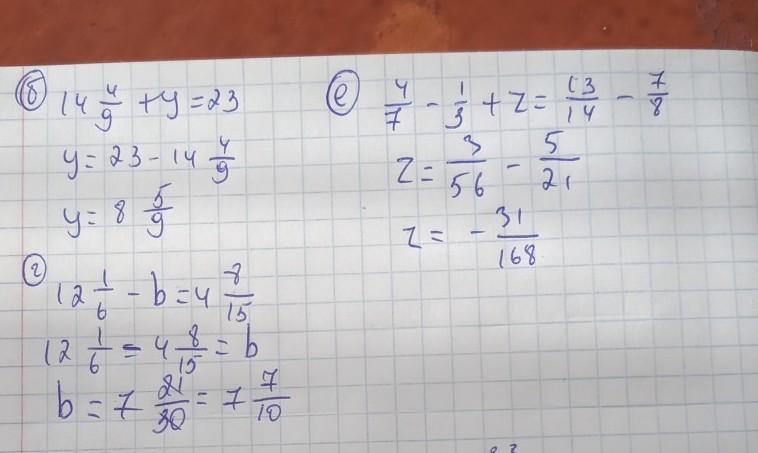 б) 14 4/9 + y = 23
y = 23 - 14 4/9
y = 8 5/9
г) 12 1/6 - b = 4 8/15
12 1/6 - 4 8/15 = b
b = 7 21/30 = 7 7/10
е) 4/7 - 1/3 + z = 13/14 - 7/8
z = 3/56 - 5/21
z = - 31/168